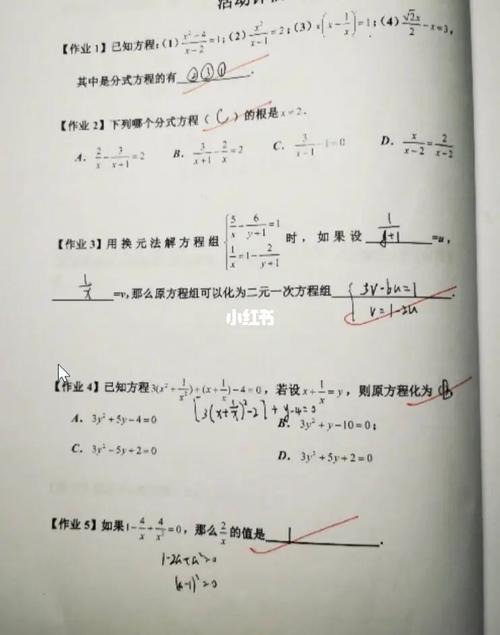 活动评价
【作业 1】已知方程:(1) (x²-4)/(x-2)=1; (2) x²/(x-1)=2; (3) x(x-1/x)=1; (4) √2x/2-x=3,
其中是分式方程的有 ②③① .
【作业 2】下列哪个分式方程( C )的根是 x=2.
A. 2/x-3/(x+1)=2 B. 3/(x+1)-2/x=2 C. 3/(x-1)-1=0 D. x/(x-2)=2/(x-2)
【作业 3】用换元法解方程组 { 5/x-6/(y+1)=1 1/x=1-2/(y+1) 时, 如果设 1/(y+1) =u,
1/x =v,那么原方程组可以化为二元一次方程组 { 3v-6u=1 v=1-2u .
小红书
【作业 4】已知方程 3(x²+1/x²)+(x+1/x)-4=0, 若设 x+1/x=y, 则原方程化为 ( B
[3(x+1/x)²-2]+y-4=0
A. 3y²+5y-4=0 B. 3y²+y-10=0;
C. 3y²-5y+2=0 D. 3y²+5y+2=0
【作业 5】如果 1-4/x+4/x²=0, 那么 2/x 的值是 1 .
1-2a+a²=0
(a-1)²=0